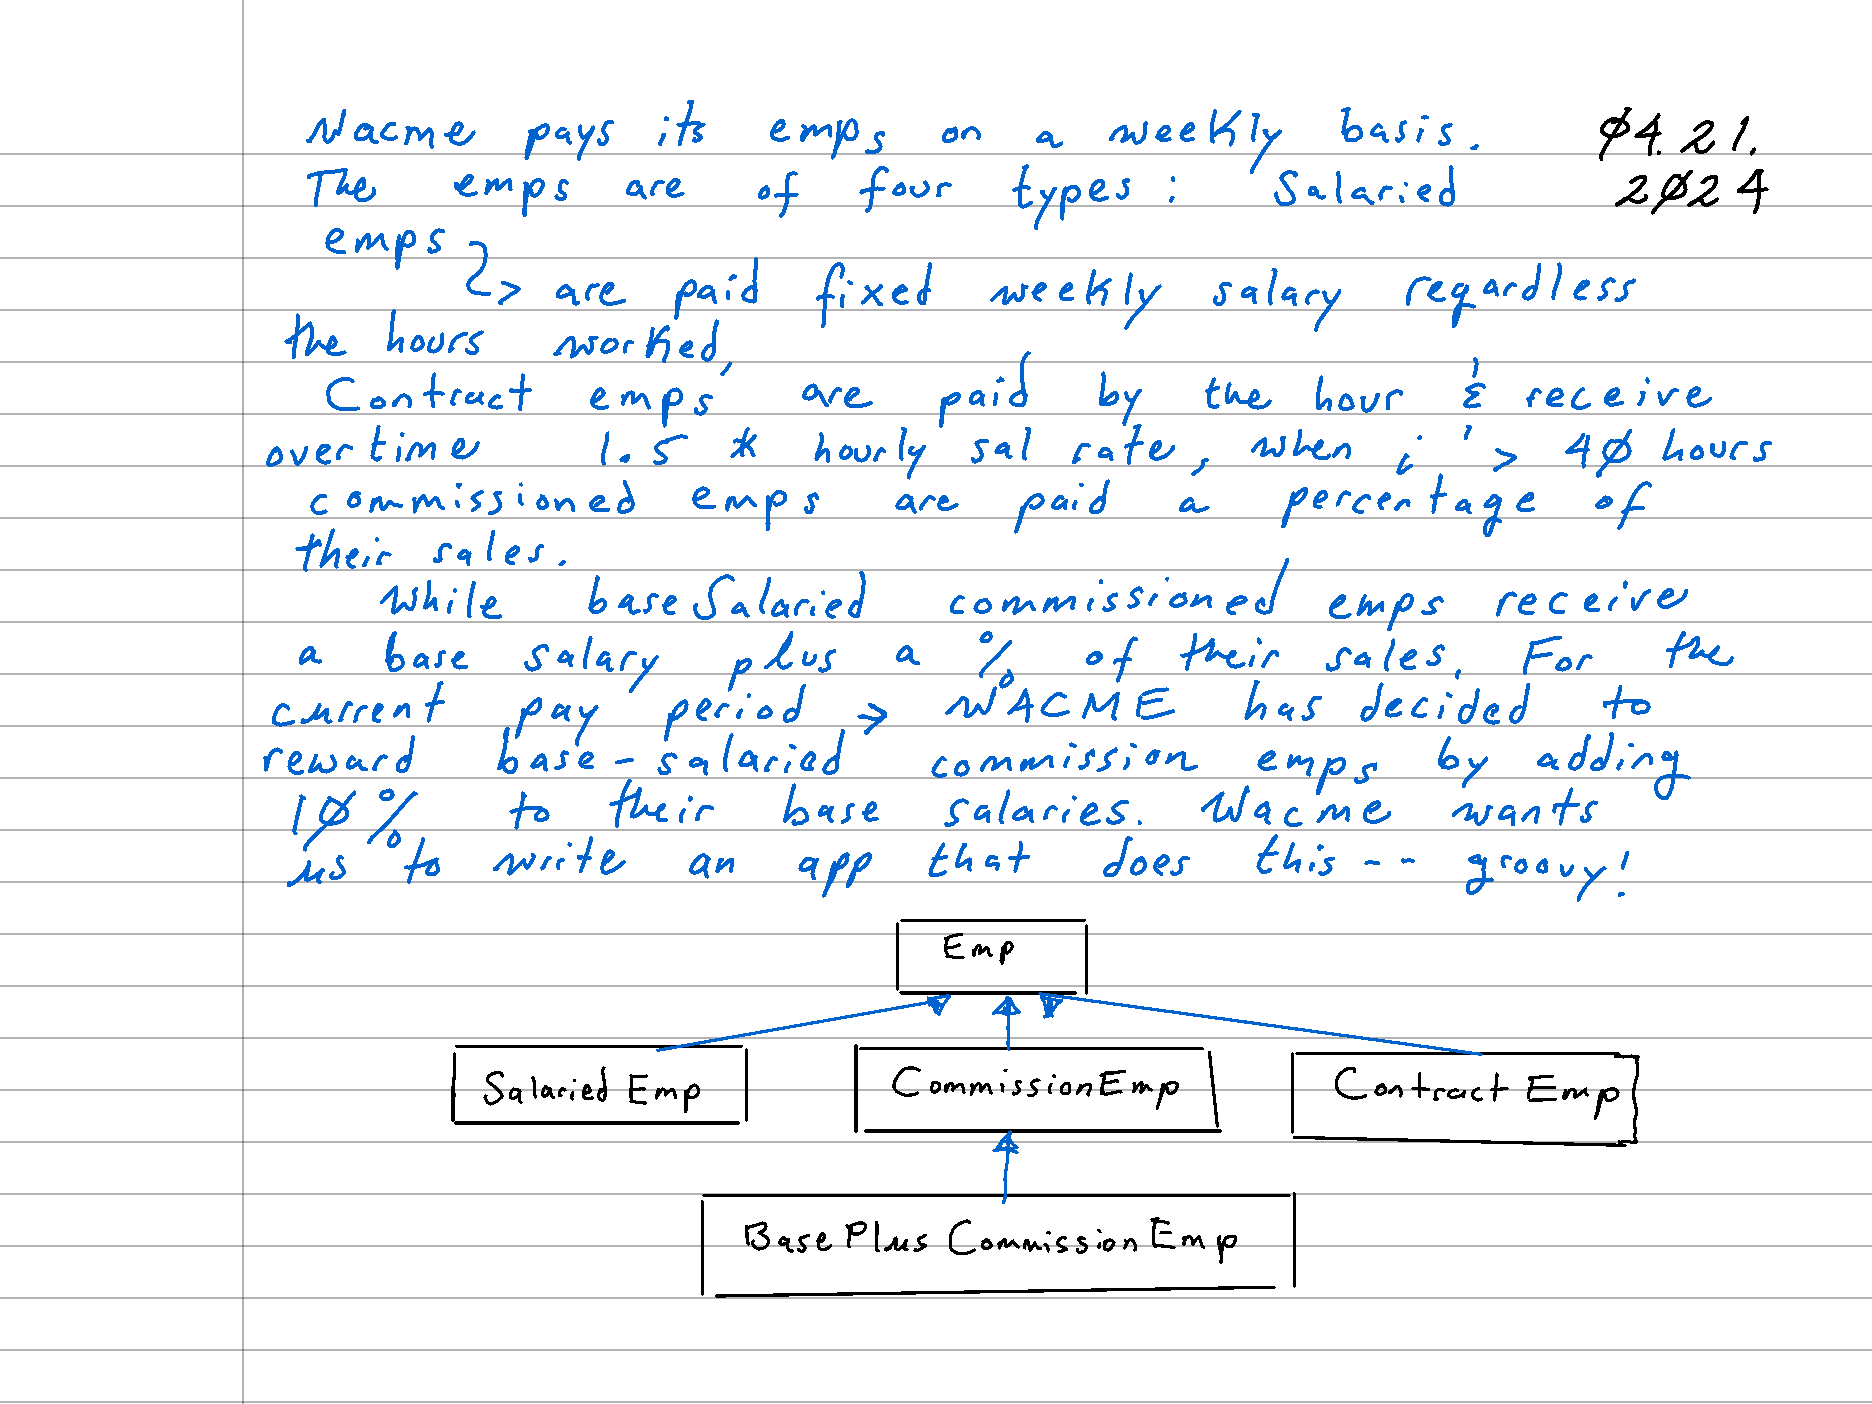 Wacme pays its emps on a weekly basis. Ø4.21.
The emps are of four types: Salaried 2Ø24
emps
are paid fixed weekly salary regardless
the hours worked,
Contract emps are paid by the hour & receive
overtime 1.5 * hourly sal rate, when > 4Ø hours
commissioned emps are paid a percentage of
their sales.
While baseSalaried commissioned emps receive
a base salary plus a % of their sales. For the
current pay period → WACME has decided to
reward base-salaried commission emps by adding
1Ø% to their base salaries. Wacme wants
us to write an app that does this -- groovy!
Emp
Salaried Emp CommissionEmp Contract Emp
BasePlus CommissionEmp